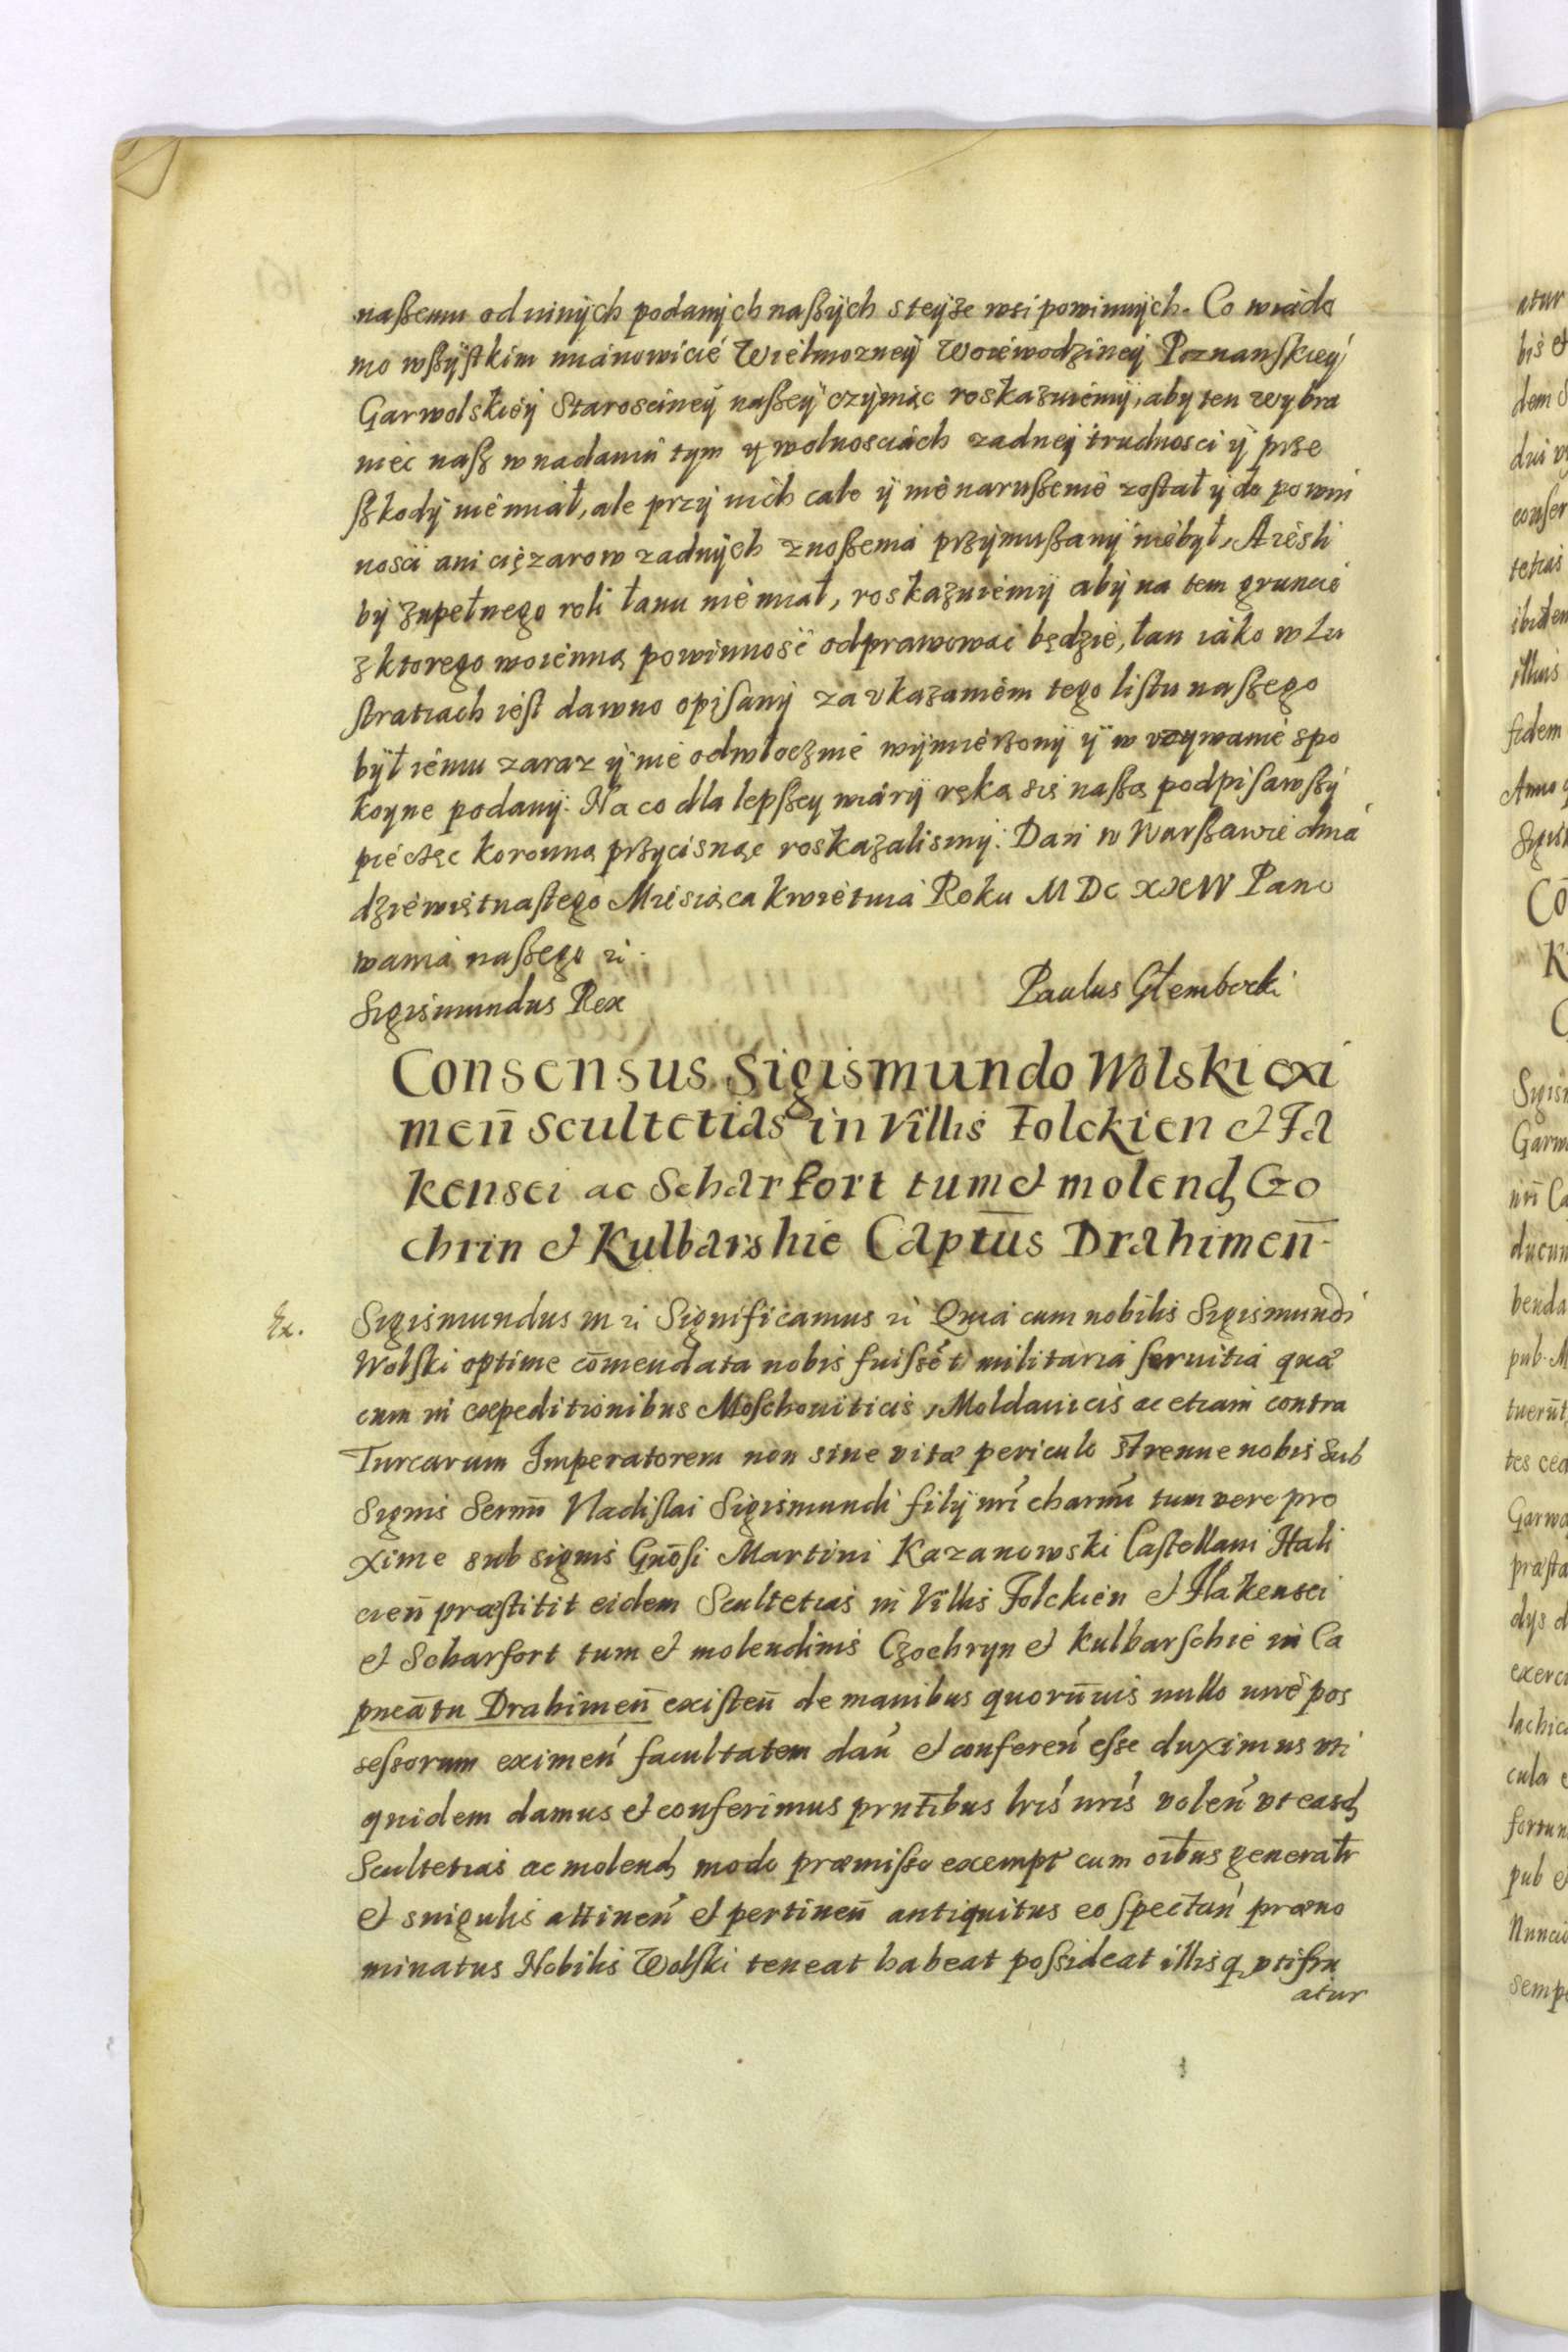 naßemu od innÿch podanych naßÿch steÿże wsi powinnÿch. Co wiado
mo wßÿstkim mianowicié Wielmozneÿ Woiéwodzineÿ Poznanskieÿ
Garwolskiéy Starosciney naßeÿ czÿniąc roskazuiémÿ, aby ten wybra
niec naß w nadaniu tym y wolnosciach zadneÿ trudnosci ÿ prze
ßkodÿ niémiał, ale przÿ nich cale ÿ niénarußenié zostat ÿ do powin
nosci ani ciężarow zadnÿch znoßenia przÿmußanÿ niébył, A iésli
bÿ zupełnego roli łanu niémiał, roskazuiémÿ abÿ na tem gruncié
z ktorego woiénną powinnosć odprawowac będzié, łan iáko w Lu
stratiach iést dawno opisanÿ za vkazaniém tego listu naßego
bÿł iému zaraz ÿ nié odwłocznié wÿmiérzonÿ ÿ w vzywanié spo
koyne podanÿ. Na co dla lepßey wiárÿ ręką się naßą podpisawßÿ
piéczęc koronną przÿcisnąc roskazalismÿ. Dan w Warßawié dniá
dziéwiętnastego Miésiąca kwiétniá Roku M DC XXIV Pano
waniá naßego ꝛc.
Sigismundus Rex Paulus Głembocki
Consensus Sigismundo Wolski exi
men̄ scultetias in Villis Folckien et Fla
kensei ac Scharfort tum et molend Go
chrin et Kulbarshie Captūs Drahimen̄
Ex. Sigismundus III ꝛc Significamus ꝛc Quia cum nobilis Sigismundi
Wolski optime cōmendata nobis fuissēt militaria seruitia quæ
cum in expeditionibus Moschouiticis, Moldauicis ac etiam contra
Turcarum Imperatorem non sine vitæ periculo strenue nobis sub
signis Sermi Vladislai Sigismundi filÿ nrī charmi tum vere pro
xime sub signis Gnōsi Martini Kazanowski Castellani Hali
cien̄ præstitit eidem Scultetias in Villis Folckien et Flakensei
et Scharfort tum et molendinis Czochryn et Kulbarschie in Ca
pneātu Drahimen̄ existen̄ de manibus quorūuis nullo iurè pos
sessorum eximen̄ facultatem dan̄ et conferen̄ esse duximus vti
quidem damus et conferimus prntībus lrīs nrīs volen̄ vt easd
Scultetias ac molend modo præmisso exempt cum oībus generalr
et singulis attinen̄ et pertinen̄ antiquitus eo spectan̄ præno
minatus Nobilis Wolski teneat habeat possideat illisq vtifru
atur